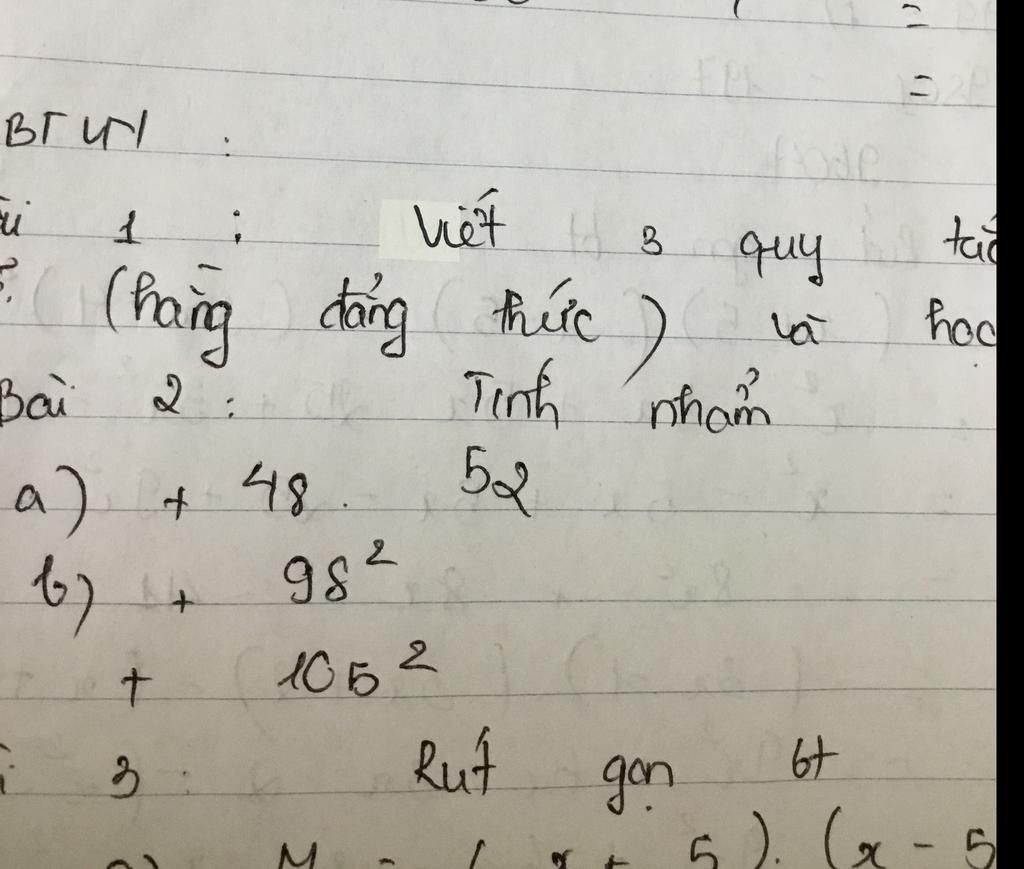 =
=
BTVN :
1 : Viết 3 quy tắc
(hằng đẳng thức) và học
Bài 2 : Tính nhẩm
a) + 48 . 52
b) + 98²
+ 105²
3 : Rút gọn bt
M = (x + 5).(x - 5